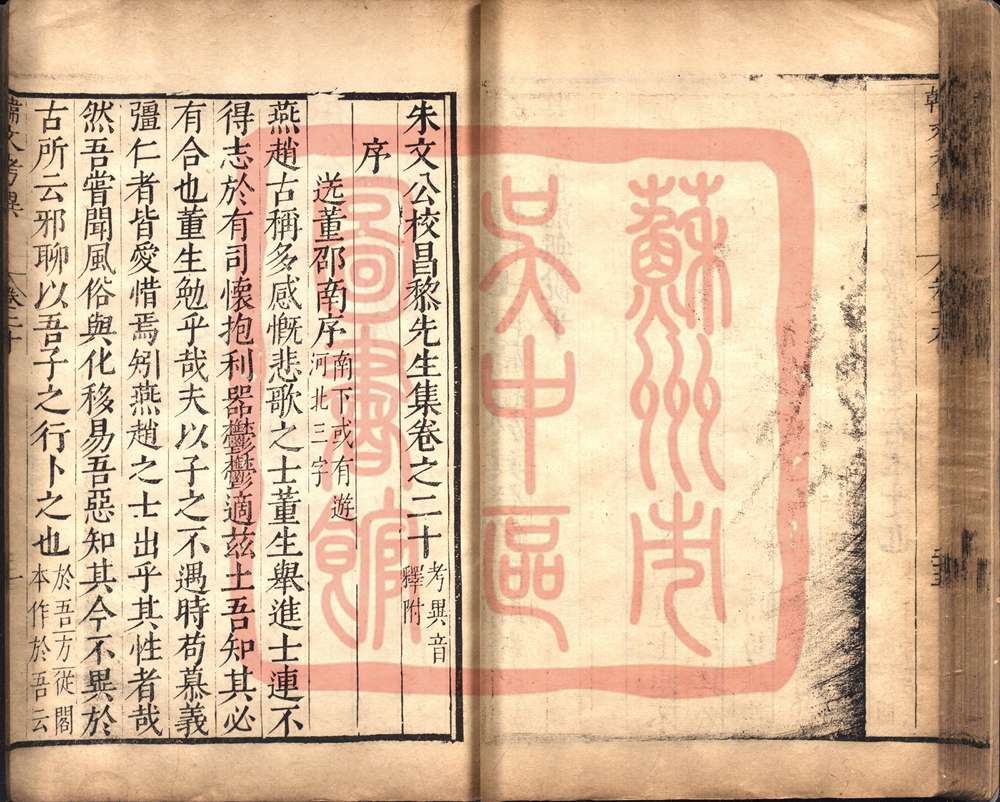 朱文公校昌黎先生集卷之二十 考異音釋附
序
送董邵南序 南下或有遊河北三字
燕趙古稱多感慨悲歌之士董生舉進士連不
得志於有司懷抱利器鬱鬱適茲土吾知其必
有合也董生勉乎哉夫以子之不遇時苟慕義
彊仁者皆愛惜焉矧燕趙之士出乎其性者哉
然吾嘗聞風俗與化移易吾惡知其今不異於
古所云邪聊以吾子之行卜之也 於吾方從閣本作於吾云
韓文考異 卷二十 一
蘇州市
吳中區
圖書館